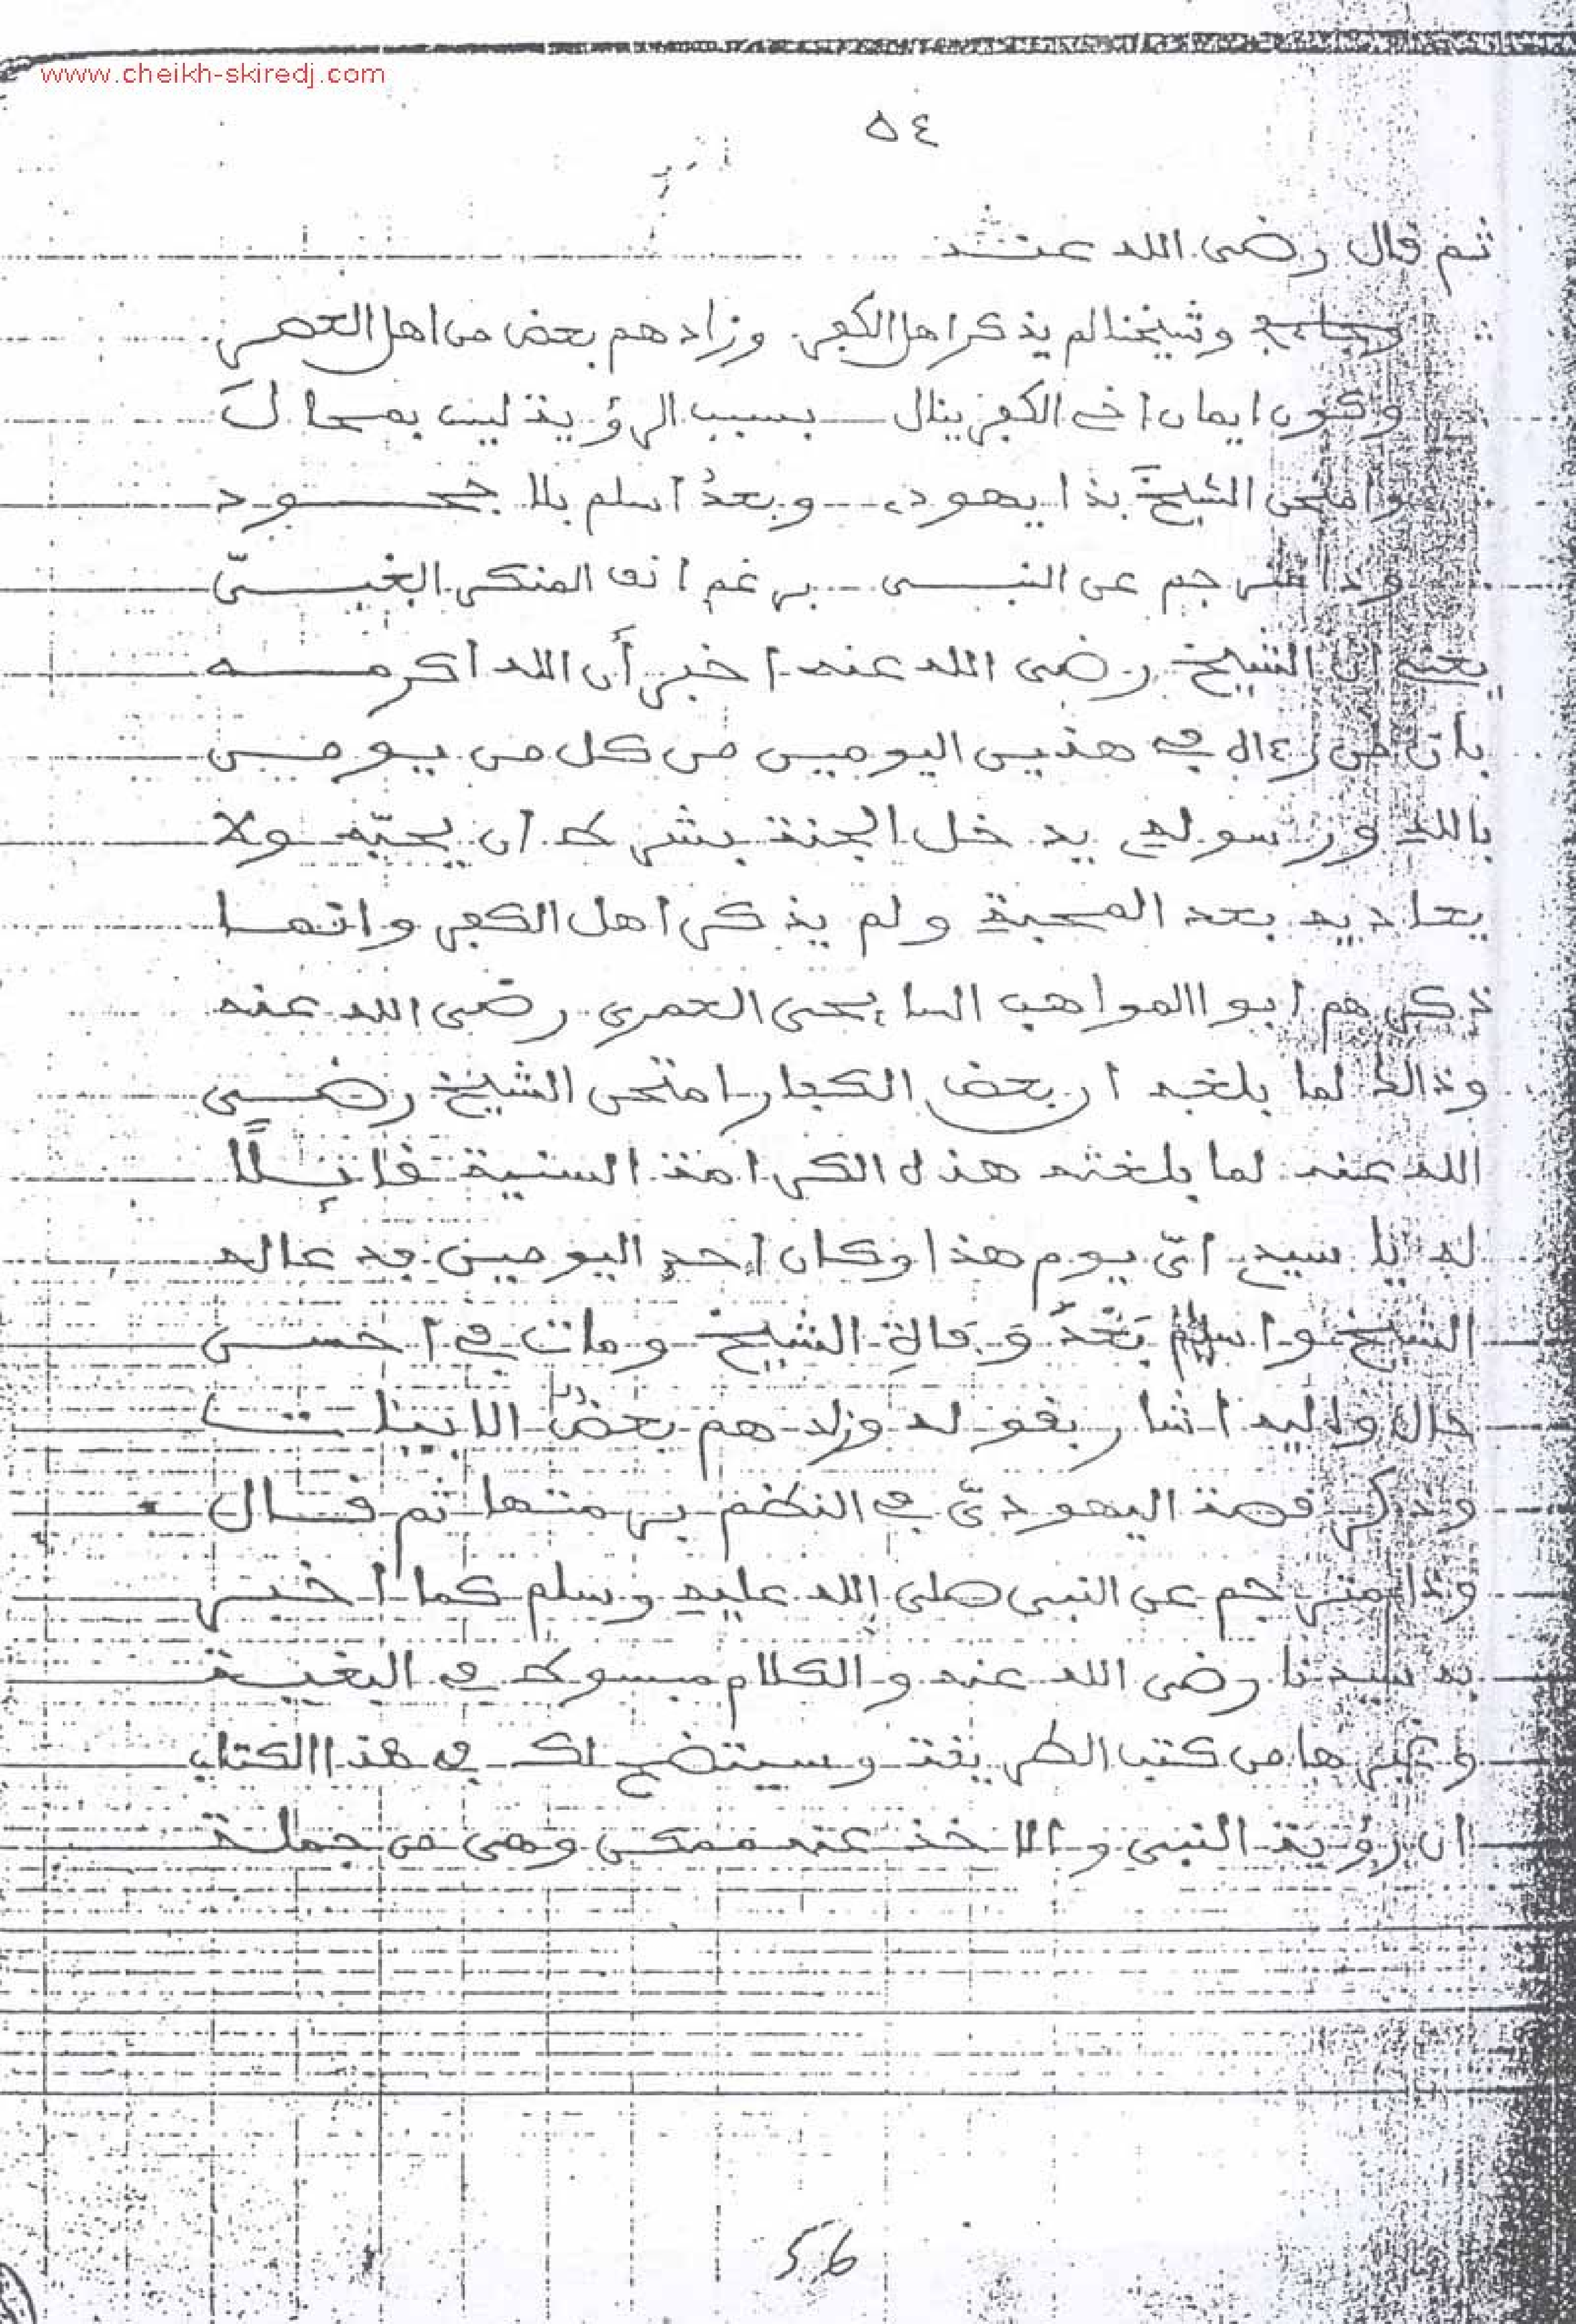 www.cheikh-skiredj.com
٥٤
ثم قال رضى الله عنه
وشيخنا لم يذكر اهل الكفر وزادهم بعض من اهل العصر
وكون ايمان اخى الكفر ينال بسبب الرؤية ليس بمحال
وامتحن الشيخَ بذا يهود وبعدُ اسلم بلا جحود
وذا مترجم عن النبى برغم انف المنكر الغبىّ
يعنى ان الشيخ رضى الله عنه اخبر أن الله اكرمه
بان من رءاه في هذين اليومين من كل من يومن
بالله ورسوله يدخل الجنة بشرط ان يحبّه ولا
يعاديه بعد المحبة ولم يذكر اهل الكفر وانما
ذكرهم ابو المواهب السايحى العمرى رضى الله عنه
وذالك لما بلغه ان بعض الكفار امتحن الشيخ رضى
الله عنه لما بلغته هذه الكرامة السنية قائلًا
له يا سيدى اىّ يوم هذا وكان احد اليومين فدعا له
الشيخ واسلم بَعْدَ وَفَاةِ الشيخ ومات في احسن
حال واليه اشار بقوله وزادهم بعضُ الابيات
وذكر قصة اليهودىّ في النظم برمتها ثم قال
وذا مترجم عن النبى صلى الله عليه وسلم كما اخبر
به سيدنا رضى الله عنه والكلام مبسوط في البغية
وغيرها من كتب الطريقة وسيتضح لك في هذا الكتاب
ان رؤية النبى والاخذ عنه ممكن وهى من جملة
56